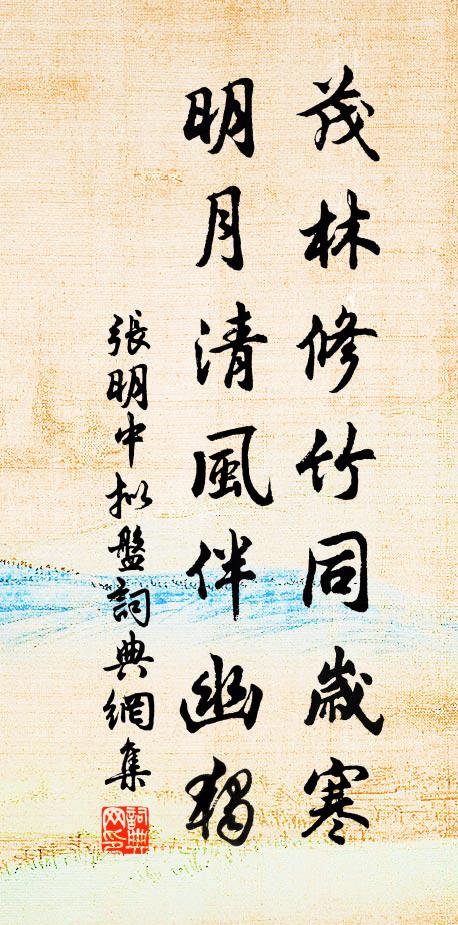 茂林修竹同歲寒
明月清風伴幽獨
張明中擬盤詞典網集
詞典網印